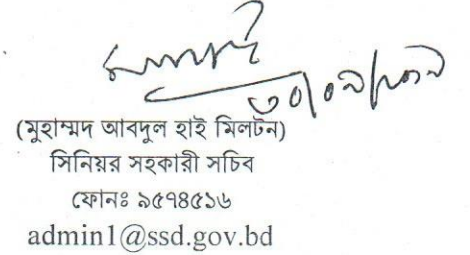 (মুহাম্মদ আবদুল হাই মিলটন)
সিনিয়র সহকারী সচিব
ফোনঃ ৯৫৭৪৫১৬
admin1@ssd.gov.bd